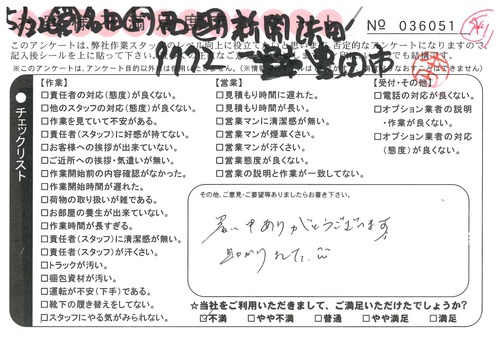 No 036051
このアンケートは、弊社作業スタッフのレベル向上に役立て
※このアンケートは、アンケート目的以外
チェックリスト
【作業】
□責任者の対応(態度)が良くない。
□他のスタッフの対応(態度)が良くない。
□作業を見ていて不安がある。
□責任者(スタッフ)に好感が持てない。
□お客様への挨拶が出来ていない。
□ご近所への挨拶・気遣いが無い。
□作業開始前の内容確認がなかった。
□作業開始時間が遅れた。
□荷物の取り扱いが雑である。
□お部屋の養生が出来ていない。
□作業時間が長すぎる。
□責任者(スタッフ)に清潔感が無い。
□責任者(スタッフ)が汗くさい。
□トラックが汚い。
□梱包資材が汚い。
□運転が不安(下手)である。
□靴下の履き替えをしてない。
□スタッフにやる気がみられない。
【営業】
□見積もり時間に遅れた。
□見積もり時間が長い。
□営業マンに清潔感が無い。
□営業マンが煙草くさい。
□営業マンが汗くさい。
□営業態度が良くない。
□営業の説明と作業が一致してない。
【受付・その他】
□電話の対応が良くない。
□オプション業者の説明
・作業が良くない。
□オプション業者の対応
(態度)が良くない。
その他、ご意見・ご要望等ありましたらお書き下さい。
暑い中ありがとうございます
助かりました。
☆当社をご利用いただきまして、ご満足いただけたでしょうか?
□不満 □やや不満 □普通 □やや満足 □満足